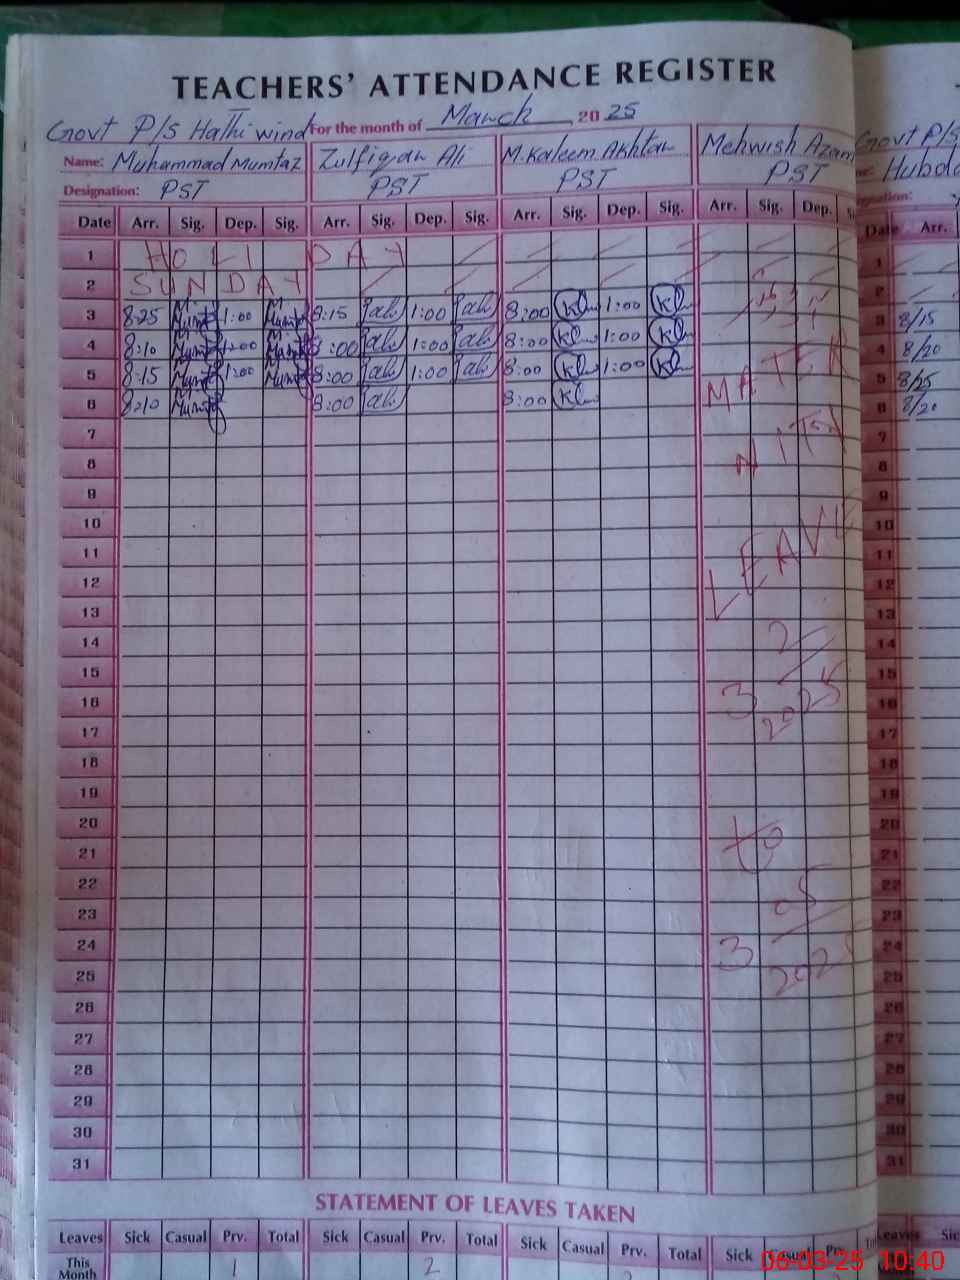 TEACHERS' ATTENDANCE REGISTER
Govt P/S Hathi wind For the month of March 2025 Govt P/S
Name: Muhammad Mumtaz Zulfiqar Ali M. Kaleem Akhtar Mehwish Azam
Designation: PST PST PST PST
Date Arr. Sig. Dep. Sig. Arr. Sig. Dep. Sig. Arr. Sig. Dep. Sig. Arr. Sig. Dep. Date Arr.
1 HOLI DAY 1
2 SUNDAY 2
3 8:25 Mumtaz 1:00 Mumtaz 8:15 Zali 1:00 Zali 8:00 Kl 1:00 Kl 3 8/15
4 8:10 Mumtaz 1:00 Mumtaz 8:00 Zali 1:00 Zali 8:00 Kl 1:00 Kl 4 8/20
5 8:15 Mumtaz 1:00 Mumtaz 8:00 Zali 1:00 Zali 8:00 Kl 1:00 Kl MATER 5 8/25
6 8:10 Mumtaz 8:00 Zali 8:00 Kl 6 8/20
7 NITY 7
8 8
9 9
10 LEAVE 10
11 11
12 12
13 13
14 2 14
15 15
16 3 2025 16
17 17
18 18
19 19
20 to 20
21 21
22 22
23 05 23
24 3 24
25 2025 25
26 26
27 27
28 28
29 29
30 30
31 31
STATEMENT OF LEAVES TAKEN
Leaves Sick Casual Prv. Total Sick Casual Prv. Total Sick Casual Prv. Total Sick Casual Prv. Leaves
This Month 1 2
06-03-25 10:40